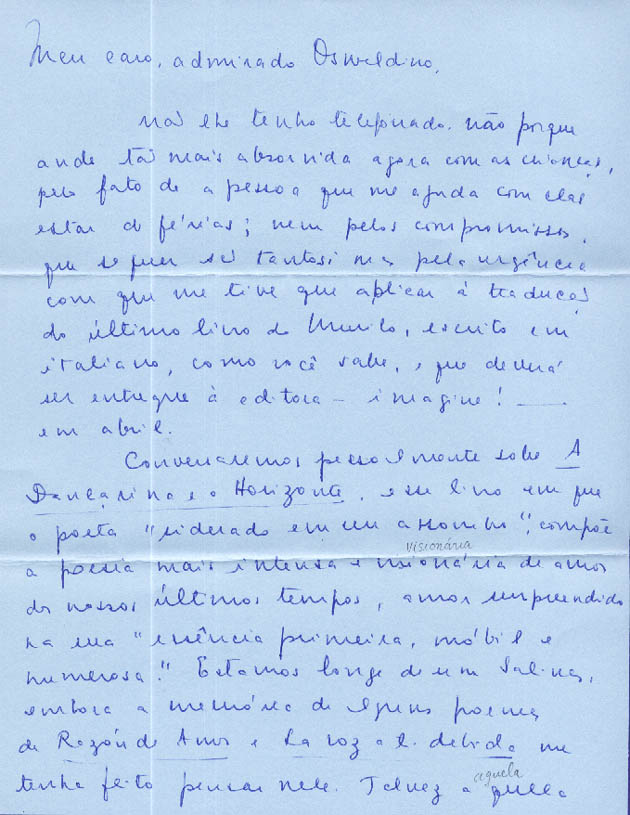 Meu caro, admirado Oswaldino,
não lhe tenho telefonado. não porque
ande tão mais absorvida agora com as crianças,
pelo fato de a pessoa que me ajuda com elas
estar de férias; nem pelos compromissos,
que sequer são tantos; mas pela urgência
com que me tive que aplicar à tradução
do último livro do Murilo, escrito em
italiano, como você sabe, e que deverá
ser entregue à editora – imagine! —
em abril.
Conversaremos pessoalmente sobre A
Dançarina e o Horizonte, esse livro em que
o poeta "siderado em um assombro", compõe
visionária
a poesia mais intensa e visionária de amor
dos nossos últimos tempos, amor surpreendido
na sua "essência primeira, móbil e
numerosa." Estamos longe de um Salinas,
embora a memória de alguns poemas
de Razón de Amor e La voz a ti debida me
aquela
tenha feito pensar nele. Talvez aquela